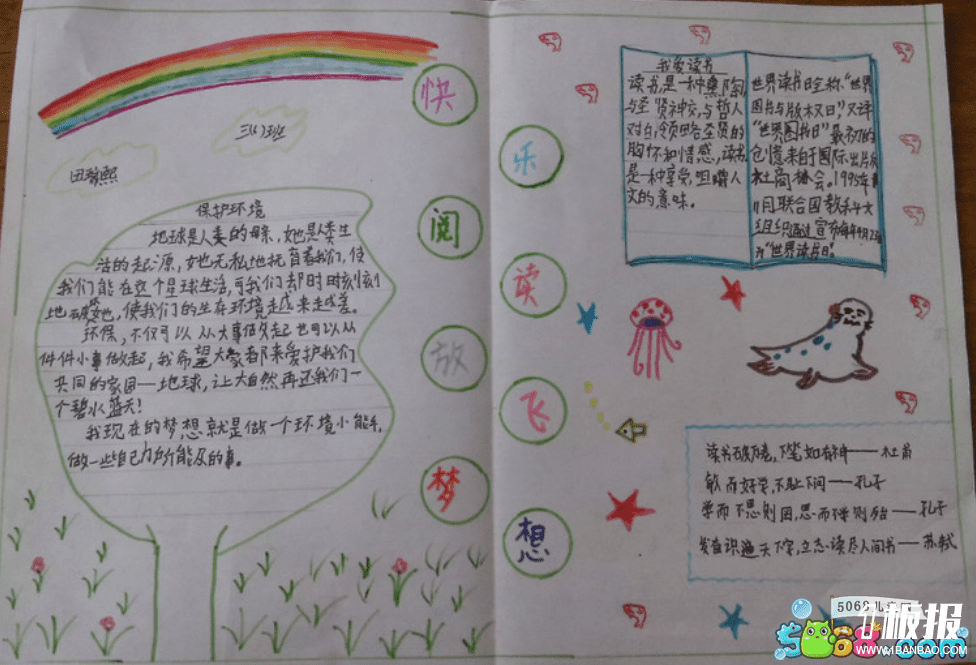 快
乐
阅
读
放
飞
梦
想
三(1)班
保护环境
地球是人类的母亲,她是人类生
活的起源,她无私地抚育着我们,使
我们能在这个星球生活,可我们却时时刻刻
地破坏她,使我们的生存环境越来越差。
环保,不仅可以从大事做起也可以从
件件小事做起,我希望大家都来爱护我们
共同的家园一地球,让大自然再还我们一
个碧水蓝天!
我现在的梦想就是做一个环境小能手,
做一些自己力所能及的事。
我爱读书
读书,是一种熏陶
与圣贤神交,与哲人
对白,领略圣贤的
胸怀和情感,读书
是一种享受,咀嚼人
文的意味。
世界读书日全称“世界
图书与版权日”,又译
“世界图书日”最初的
创意来自于国际出版
社商协会。1995年
11月联合国教科文
组织通过宣布每年4月23日
为“世界读书日”。
读书破万卷,下笔如有神——杜甫
敏而好学,不耻下问——孔子
学而不思则罔,思而不学则殆——孔子
发奋识遍天下字,立志读尽人间书——苏轼
5068儿童
5068.com
板报
WWW.1BANBAO.COM